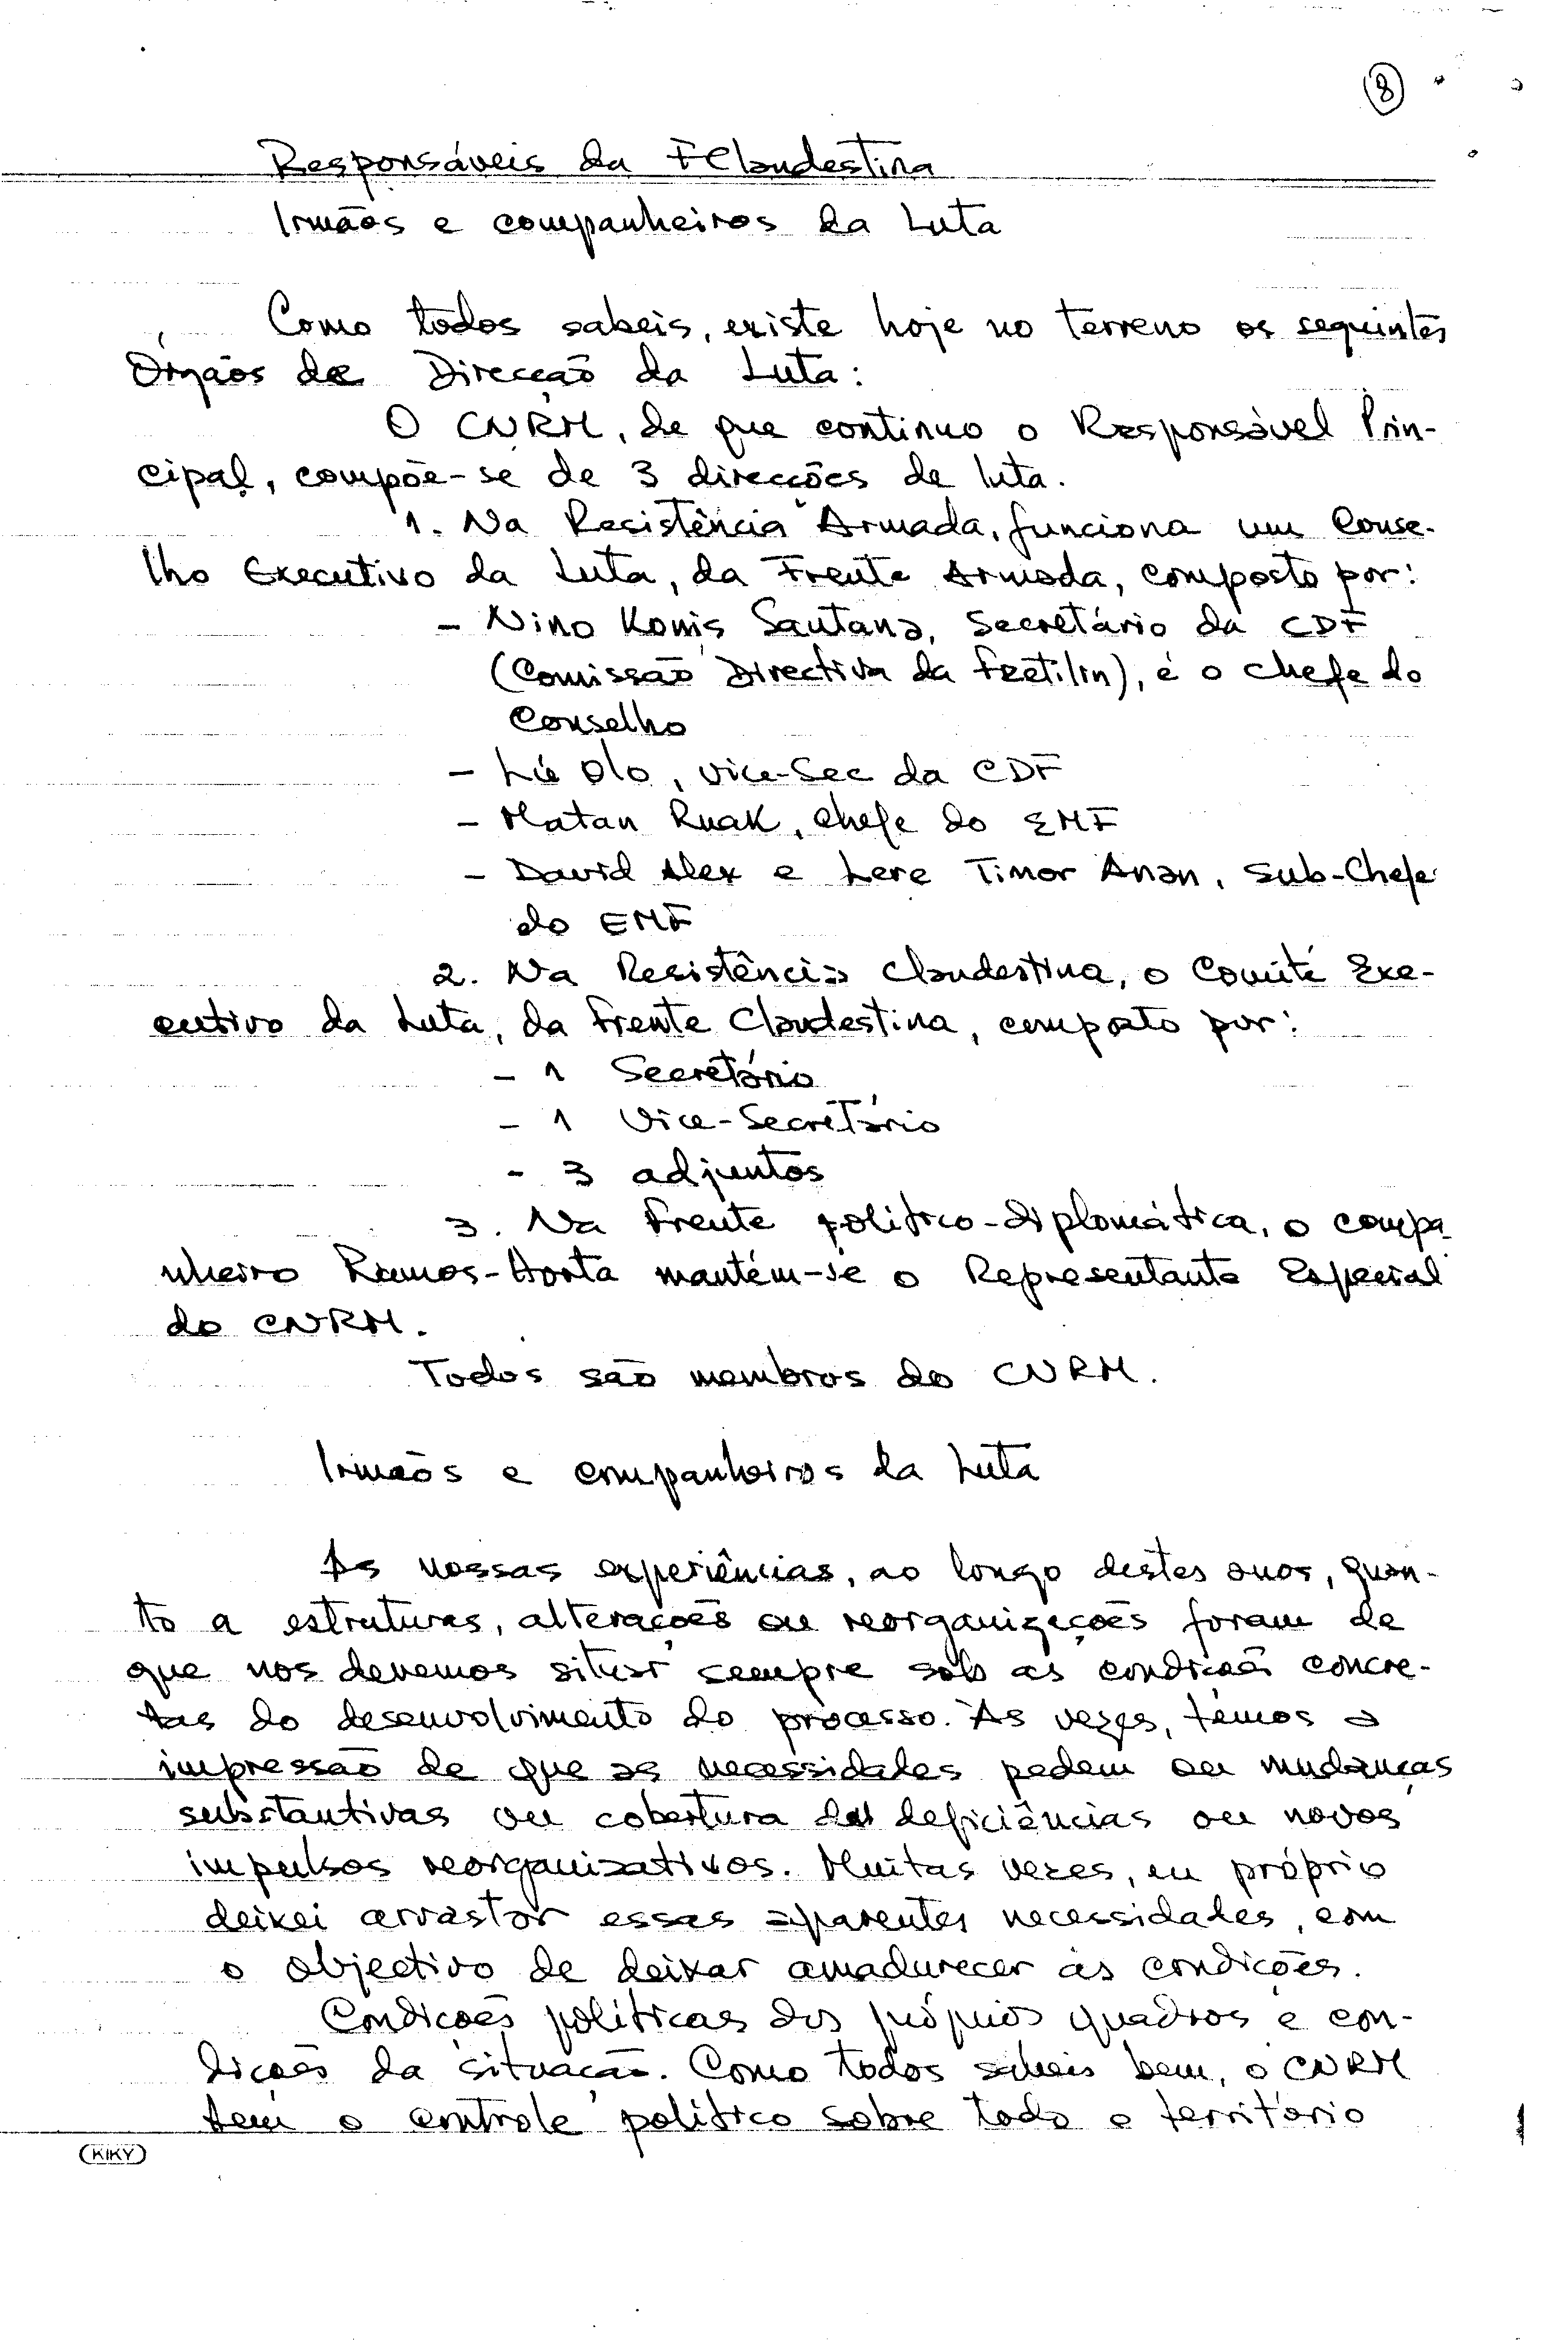 8
Responsáveis da FClandestina
Irmãos e companheiros da Luta
Como todos sabeis, existe hoje no terreno os seguintes
Órgãos de Direcção da Luta:
O CNRM, de que continuo o Responsável Prin-
cipal, compõe-se de 3 direcções de luta.
1. Na Resistência Armada, funciona um Conse-
lho Executivo da Luta, da Frente Armada, composto por:
- Nino Konis Santana, Secretário da CDF
(Comissão Directiva da Fretilin), é o chefe do
Conselho
- Lú Olo, vice-Sec da CDF
- Matan Ruak, chefe do EMF
- David Alex e Lere Timor Anan, Sub-Chefe
do EMF
2. Na Resistência Clandestina, o Comité Exe-
cutivo da Luta, da Frente Clandestina, composto por:
- 1 Secretário
- 1 Vice-Secretário
- 3 adjuntos
3. Na Frente político-diplomática, o compa-
nheiro Ramos-Horta mantém-se o Representante Especial
do CNRM.
Todos são membros do CNRM.
Irmãos e companheiros da Luta
As nossas experiências, ao longo destes anos, quan-
to a estruturas, alterações ou reorganizações foram de
que nos devemos situar sempre sob as condições concre-
tas do desenvolvimento do processo. Às vezes, temos a
impressão de que as necessidades pedem ou mudanças
substantivas ou cobertura das deficiências ou novos
impulsos reorganizativos. Muitas vezes, eu próprio
deixei arrastar essas aparentes necessidades, com
o objectivo de deixar amadurecer as condições.
Condições políticas dos próprios quadros e con-
dições da situação. Como todos sabeis bem, o CNRM
tem o controle político sobre todo o território
KIKY